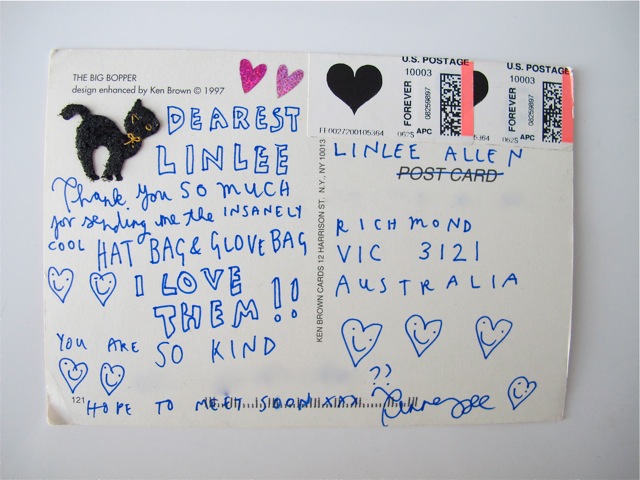 THE BIG BOPPER
design enhanced by Ken Brown © 1997
DEAREST
LINLEE
Thank you SO MUCH
for sending me the INSANELY
COOL HAT BAG & GLOVE BAG
I LOVE
THEM!!
YOU ARE SO KIND
HOPE TO MEET SOON XXX
121
KEN BROWN CARDS 12 HARRISON ST. N.Y., NY 10013
U.S. POSTAGE
10003
FOREVER
08259897
062S APC
FF0027200105364
U.S. POSTAGE
10003
FOREVER
08259897
062S APC
5364
LINLEE ALLEN
POST CARD
RICHMOND
VIC 3121
AUSTRALIA